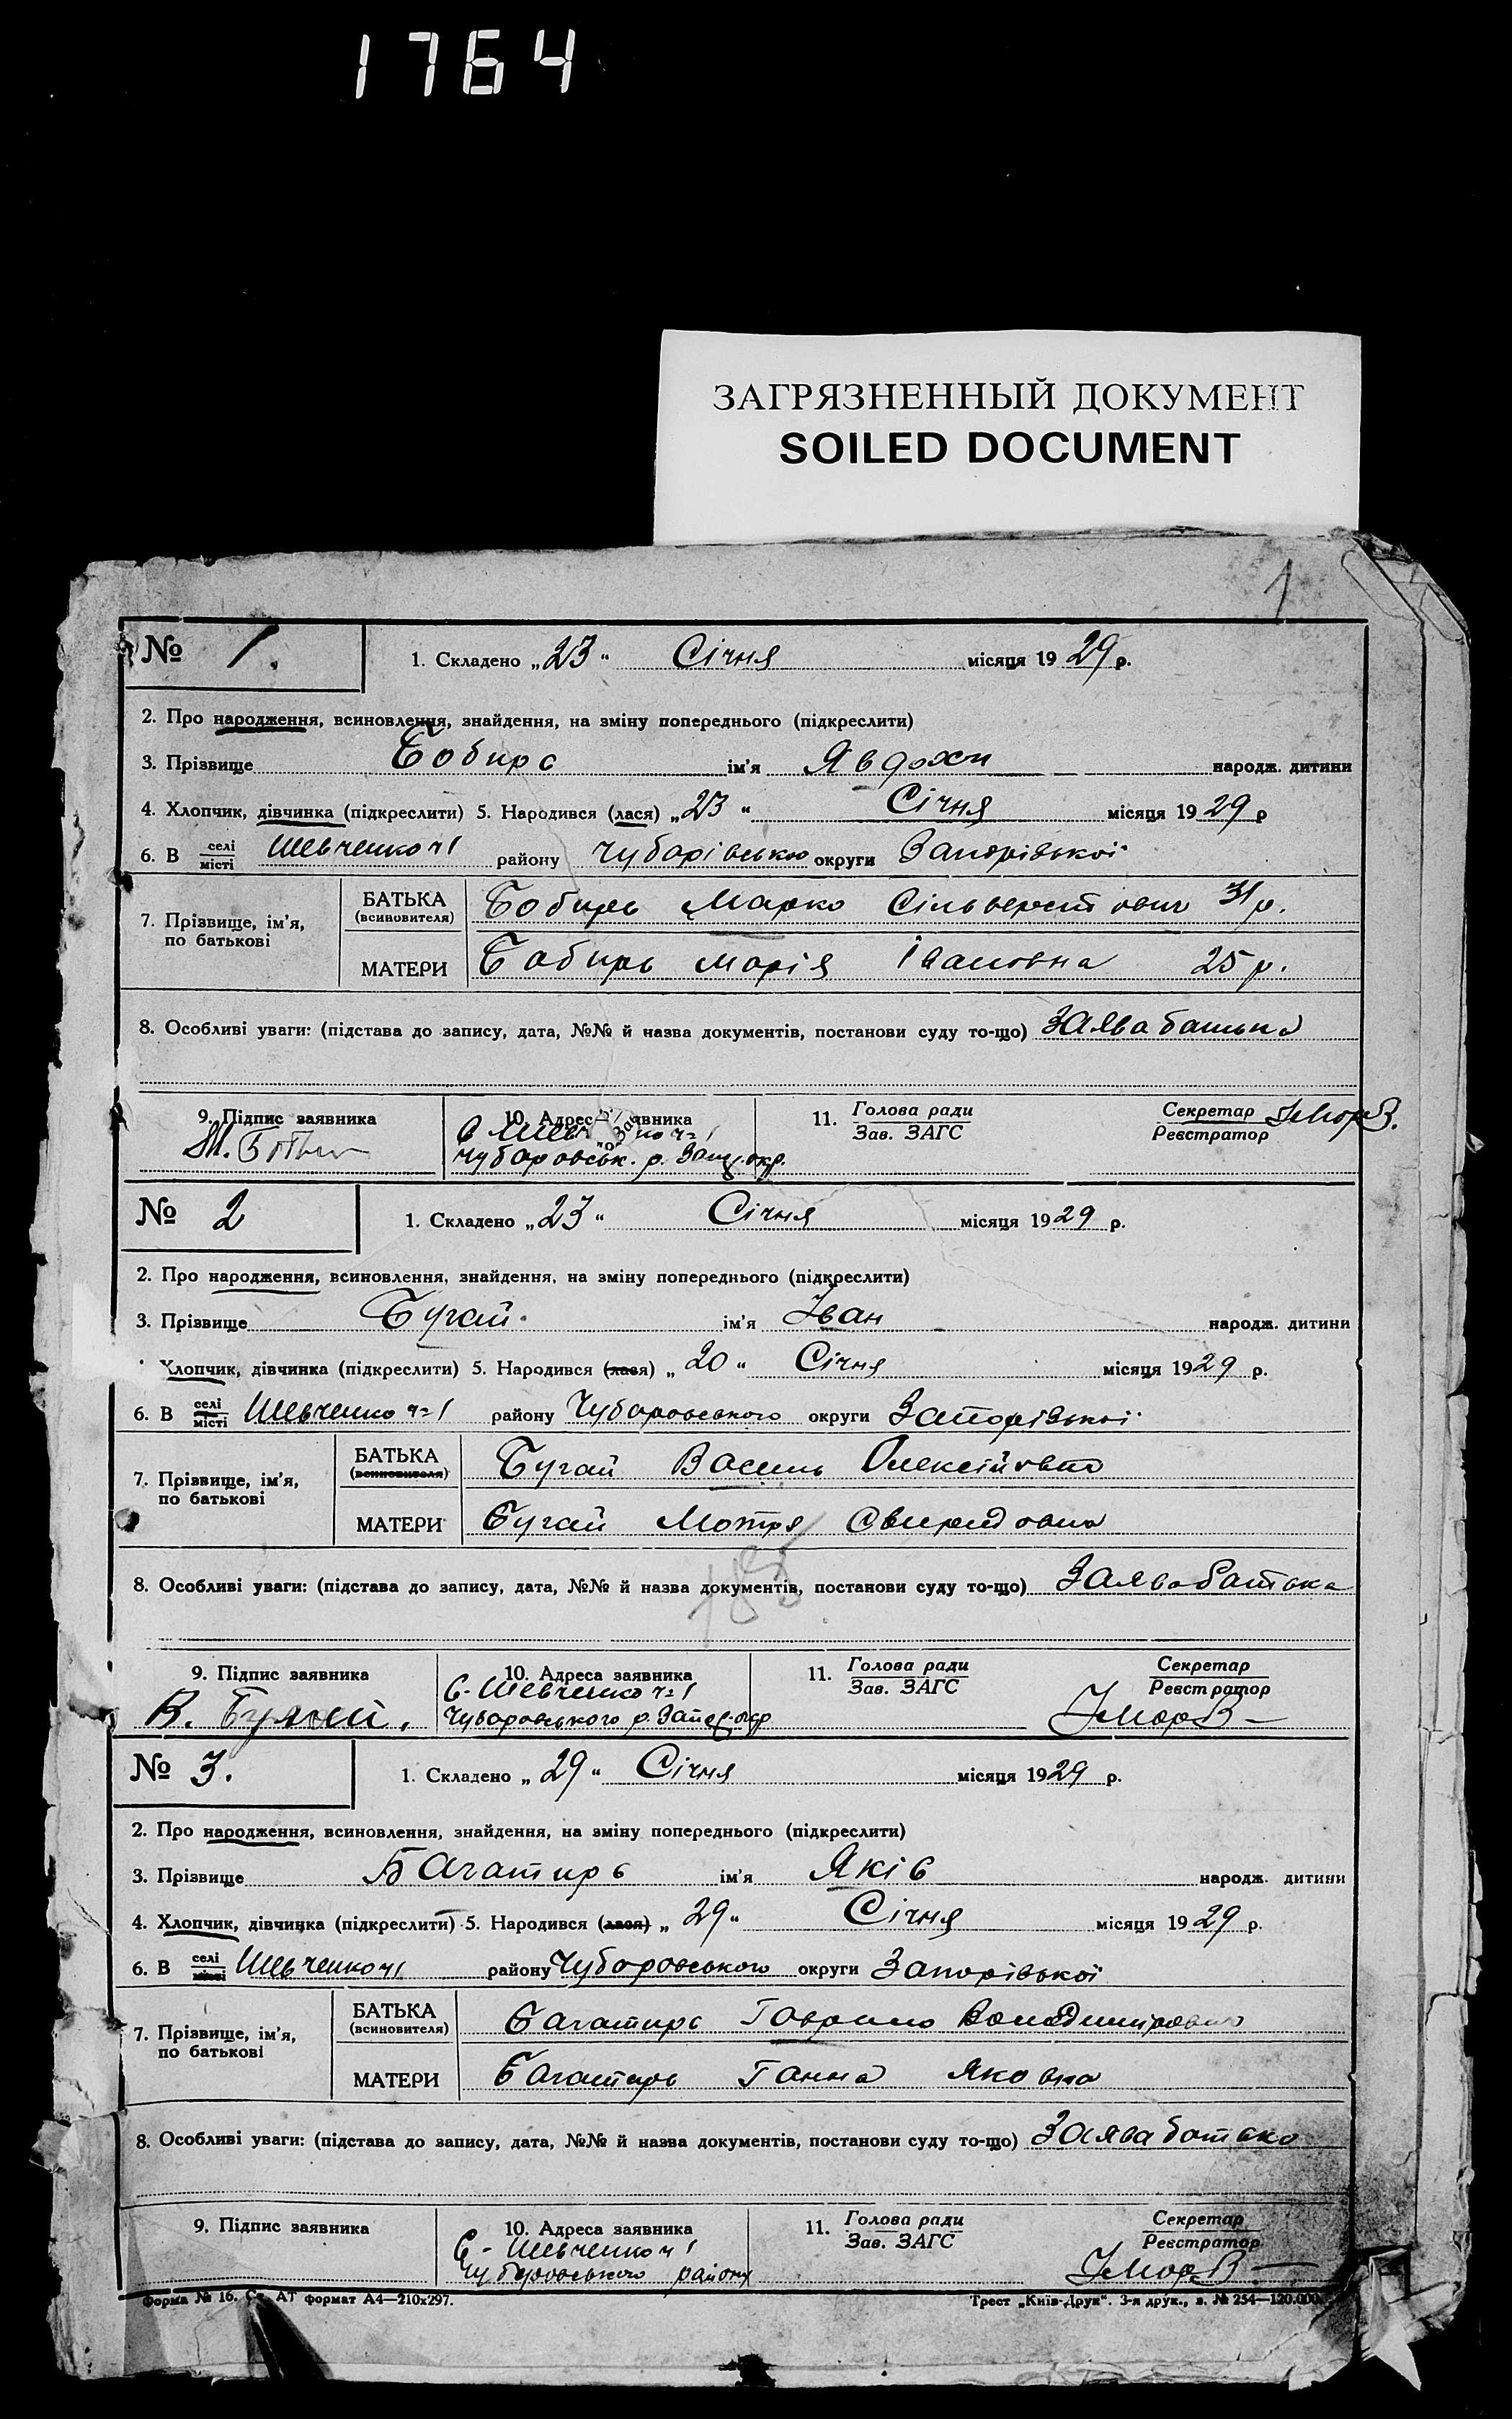 1764
ЗАГРЯЗНЕННЫЙ ДОКУМЕНТ
SOILED DOCUMENT
1
№ 1. 1. Складено „23“ Січня місяця 1929 р.
2. Про народження, всиновлення, знайдення, на зміну попереднього (підкреслити)
3. Прізвище Бобирь ім'я Явдохи народж. дитини
4. Хлопчик, дівчинка (підкреслити) 5. Народився (лася) „23“ Січня місяця 1929 р
6. В селі місті Шевченко ч1 району Чубарівсько округи Запорізької
7. Прізвище, ім'я, по батькові БАТЬКА (всиновителя) Бобирь Марко Сільверстович 31 р.
МАТЕРИ Бобирь Марія Івановна 25 р.
8. Особливі уваги: (підстава до запису, дата, №№ й назва документів, постанови суду то-що) Заява батька
9. Підпис заявника 10. Адреса заявника 11. Голова ради Зав. ЗАГС Секретар Реєстратор
М.
Чубаровськ. р. Зап. окр.
№ 2 1. Складено „23“ Січня місяця 1929 р.
2. Про народження, всиновлення, знайдення, на зміну попереднього (підкреслити)
3. Прізвище Бугай ім'я Іван народж. дитини
Хлопчик, дівчинка (підкреслити) 5. Народився (лася) „20“ Січня місяця 1929 р.
6. В селі місті Шевченко ч=1 району Чубаровського округи Запорізької
7. Прізвище, ім'я, по батькові БАТЬКА (всиновителя) Бугай Василь Олексійович
МАТЕРИ Бугай Мотря Свиридовна
185
8. Особливі уваги: (підстава до запису, дата, №№ й назва документів, постанови суду то-що) Заява батька
9. Підпис заявника 10. Адреса заявника 11. Голова ради Зав. ЗАГС Секретар Реєстратор
С. Шевченко ч=1
В. Бугай. Чубаровського р. Запор. окр
№ 3. 1. Складено „29“ Січня місяця 1929 р.
2. Про народження, всиновлення, знайдення, на зміну попереднього (підкреслити)
3. Прізвище Багатирь ім'я Яків народж. дитини
4. Хлопчик, дівчинка (підкреслити) 5. Народився (лася) „29“ Січня місяця 1929 р.
6. В селі місті Шевченко ч1 району Чубаровського округи Запорізької
7. Прізвище, ім'я, по батькові БАТЬКА (всиновителя) Багатирь Гаврило Володимірович
МАТЕРИ Багатирь Ганна Яковна
8. Особливі уваги: (підстава до запису, дата, №№ й назва документів, постанови суду то-що) Заява батька
9. Підпис заявника 10. Адреса заявника 11. Голова ради Зав. ЗАГС Секретар Реєстратор
С - Шевченко ч1
Чубаровського району
Форма № 16. Ст. АТ формат А4—210х297. Трест „Київ-Друк“. 3-я друк., з. № 254—120.000